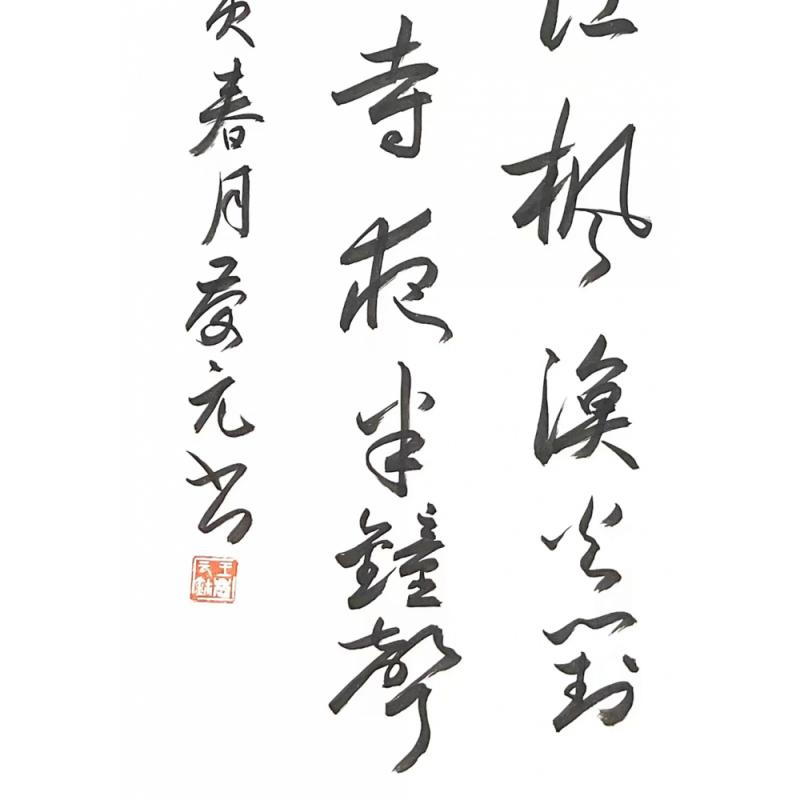 江楓漁火對
寺夜半鐘聲
寅春月元书